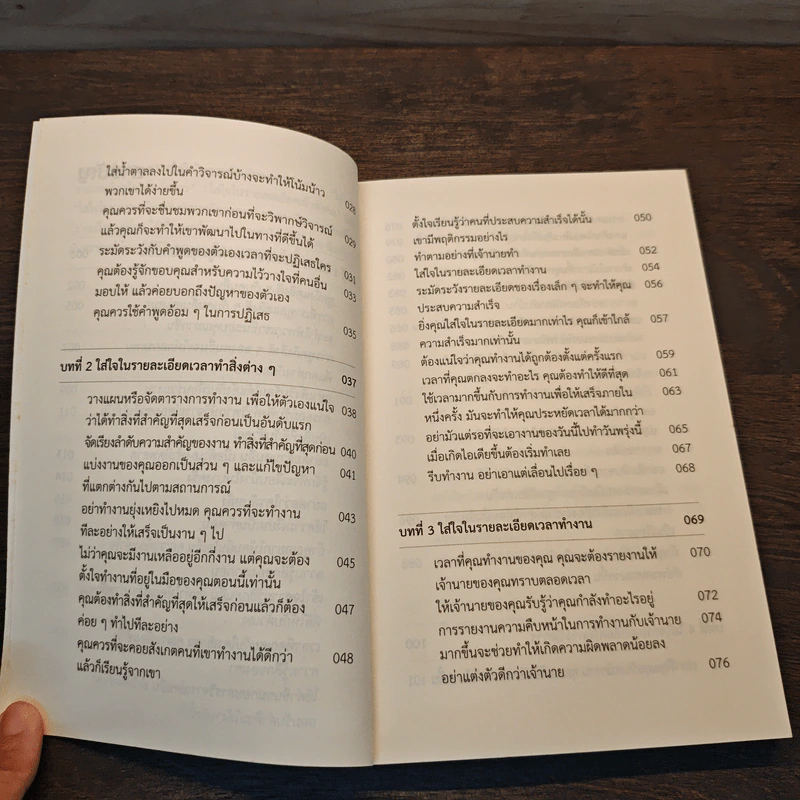 ใส่น้ำตาลลงไปในคำวิจารณ์บ้างจะทำให้โน้มน้าว
พวกเขาได้ง่ายขึ้น 028
คุณควรที่จะชื่นชมพวกเขาก่อนที่จะวิพากษ์วิจารณ์
แล้วคุณก็จะทำให้เขาพัฒนาไปในทางที่ดีขึ้นได้ 029
ระมัดระวังกับคำพูดของตัวเองเวลาที่จะปฏิเสธใคร 031
คุณต้องรู้จักขอบคุณสำหรับความไว้วางใจที่คนอื่น 033
มอบให้ แล้วค่อยบอกถึงปัญหาของตัวเอง
คุณควรใช้คำพูดอ้อม ๆ ในการปฏิเสธ 035
บทที่ 2 ใส่ใจในรายละเอียดเวลาทำสิ่งต่าง ๆ 037
วางแผนหรือจัดตารางการทำงาน เพื่อให้ตัวเองแน่ใจ 038
ว่าได้ทำสิ่งที่สำคัญที่สุดเสร็จก่อนเป็นอันดับแรก
จัดเรียงลำดับความสำคัญของงาน ทำสิ่งที่สำคัญที่สุดก่อน 040
แบ่งงานของคุณออกเป็นส่วน ๆ และแก้ไขปัญหา 041
ที่แตกต่างกันไปตามสถานการณ์
อย่าทำงานยุ่งเหยิงไปหมด คุณควรที่จะทำงาน 043
ทีละอย่างให้เสร็จเป็นงาน ๆ ไป
ไม่ว่าคุณจะมีงานเหลืออยู่อีกกี่งาน แต่คุณจะต้อง 045
ตั้งใจทำงานที่อยู่ในมือของคุณตอนนี้เท่านั้น
คุณต้องทำสิ่งที่สำคัญที่สุดให้เสร็จก่อนแล้วก็ต้อง 047
ค่อย ๆ ทำไปทีละอย่าง
คุณควรที่จะคอยสังเกตคนที่เขาทำงานได้ดีกว่า 048
แล้วก็เรียนรู้จากเขา
ตั้งใจเรียนรู้ว่าคนที่ประสบความสำเร็จได้นั้น 050
เขามีพฤติกรรมอย่างไร
ทำตามอย่างที่เจ้านายทำ 052
ใส่ใจในรายละเอียดเวลาทำงาน 054
ระมัดระวังรายละเอียดของเรื่องเล็ก ๆ จะทำให้คุณ 056
ประสบความสำเร็จ
ยิ่งคุณใส่ใจในรายละเอียดมากเท่าไร คุณก็เข้าใกล้ 057
ความสำเร็จมากเท่านั้น
ต้องแน่ใจว่าคุณทำงานได้ถูกต้องตั้งแต่ครั้งแรก 059
เวลาที่คุณตกลงจะทำอะไร คุณต้องทำให้ดีที่สุด 061
ใช้เวลามากขึ้นกับการทำงานเพื่อให้เสร็จภายใน 063
หนึ่งครั้ง มันจะทำให้คุณประหยัดเวลาได้มากกว่า
อย่ามัวแต่รอที่จะเอางานของวันนี้ไปทำวันพรุ่งนี้ 065
เมื่อเกิดไอเดียขึ้นต้องเริ่มทำเลย 067
รีบทำงาน อย่าเอาแต่เลื่อนไปเรื่อย ๆ 068
บทที่ 3 ใส่ใจในรายละเอียดเวลาทำงาน 069
เวลาที่คุณทำงานของคุณ คุณจะต้องรายงานให้ 070
เจ้านายของคุณทราบตลอดเวลา
ให้เจ้านายของคุณรับรู้ว่าคุณกำลังทำอะไรอยู่ 072
การรายงานความคืบหน้าในการทำงานกับเจ้านาย 074
มากขึ้นจะช่วยทำให้เกิดความผิดพลาดน้อยลง
อย่าแต่งตัวดีกว่าเจ้านาย 076